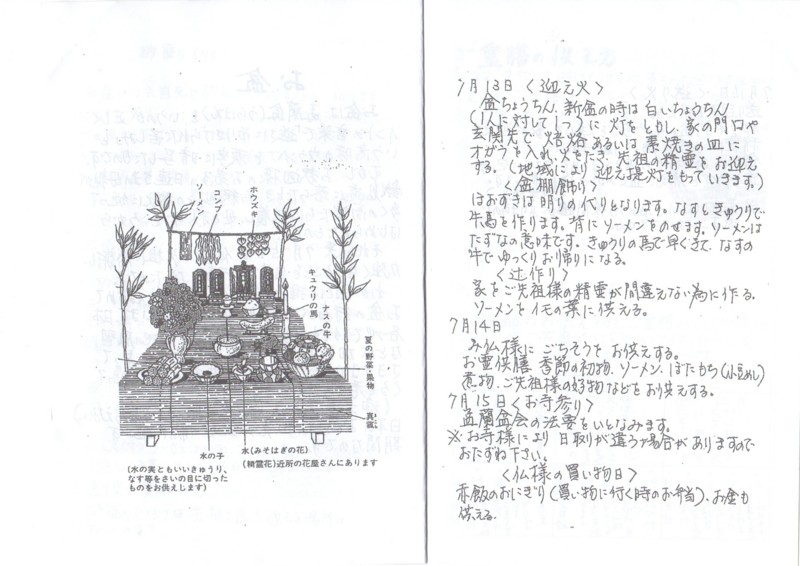 ホウズキ
コンブ
ソーメン
キュウリの馬
ナスの牛
夏の野菜・果物
真菰
水の子
(水の実ともいいきゅうり、
なす等をさいの目に切った
ものをお供えします)
水(みそはぎの花)
(精霊花)近所の花屋さんにあります
7月13日〈迎え火〉
盆ちょうちん、新盆の時は白いちょうちん
(1人に対して1つ)に灯をともし、家の門口や
玄関先で焙烙あるいは素焼きの皿に
オガラを入れ、火をたき、先祖の精霊をお迎え
する。(地域により迎え提灯をもっていきます。)
〈盆棚飾り〉
ほおずきは明りの代りとなります。なすときゅうりで
牛馬を作ります。背にソーメンをのせます。ソーメンは
たずなの意味です。きゅうりの馬で早くきて、なすの
牛でゆっくりお帰りになる。
〈辻作り〉
家をご先祖様の精霊が間違えない為に作る。
ソーメンをイモの葉に供える。
7月14日
み仏様にごちそうをお供えする。
お霊供膳、季節の初物、ソーメン、ぼたもち(小豆めし)
煮物、ご先祖様の好物などをお供えする。
7月15日〈お寺参り〉
盂蘭盆会の法要をいとなみます。
※お寺様により日取りが違う場合がありますので
おたずね下さい。
〈仏様の買い物日〉
赤飯のおにぎり(買い物に行く時のお弁当)、お金も
供える。